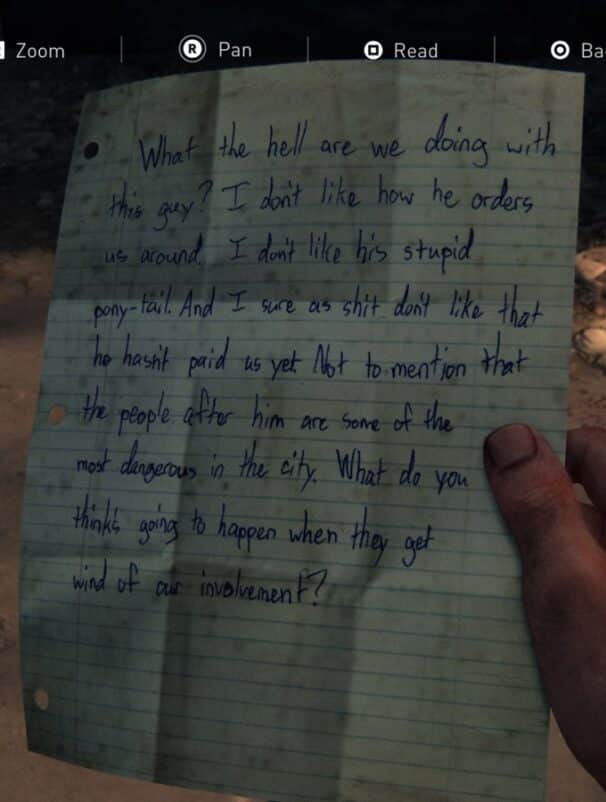 Zoom R Pan Read Ba
What the hell are we doing with
this guy? I don't like how he orders
us around. I don't like his stupid
pony-tail. And I sure as shit don't like that
he hasn't paid us yet. Not to mention that
the people after him are some of the
most dangerous in the city. What do you
think's going to happen when they get
wind of our involvement?